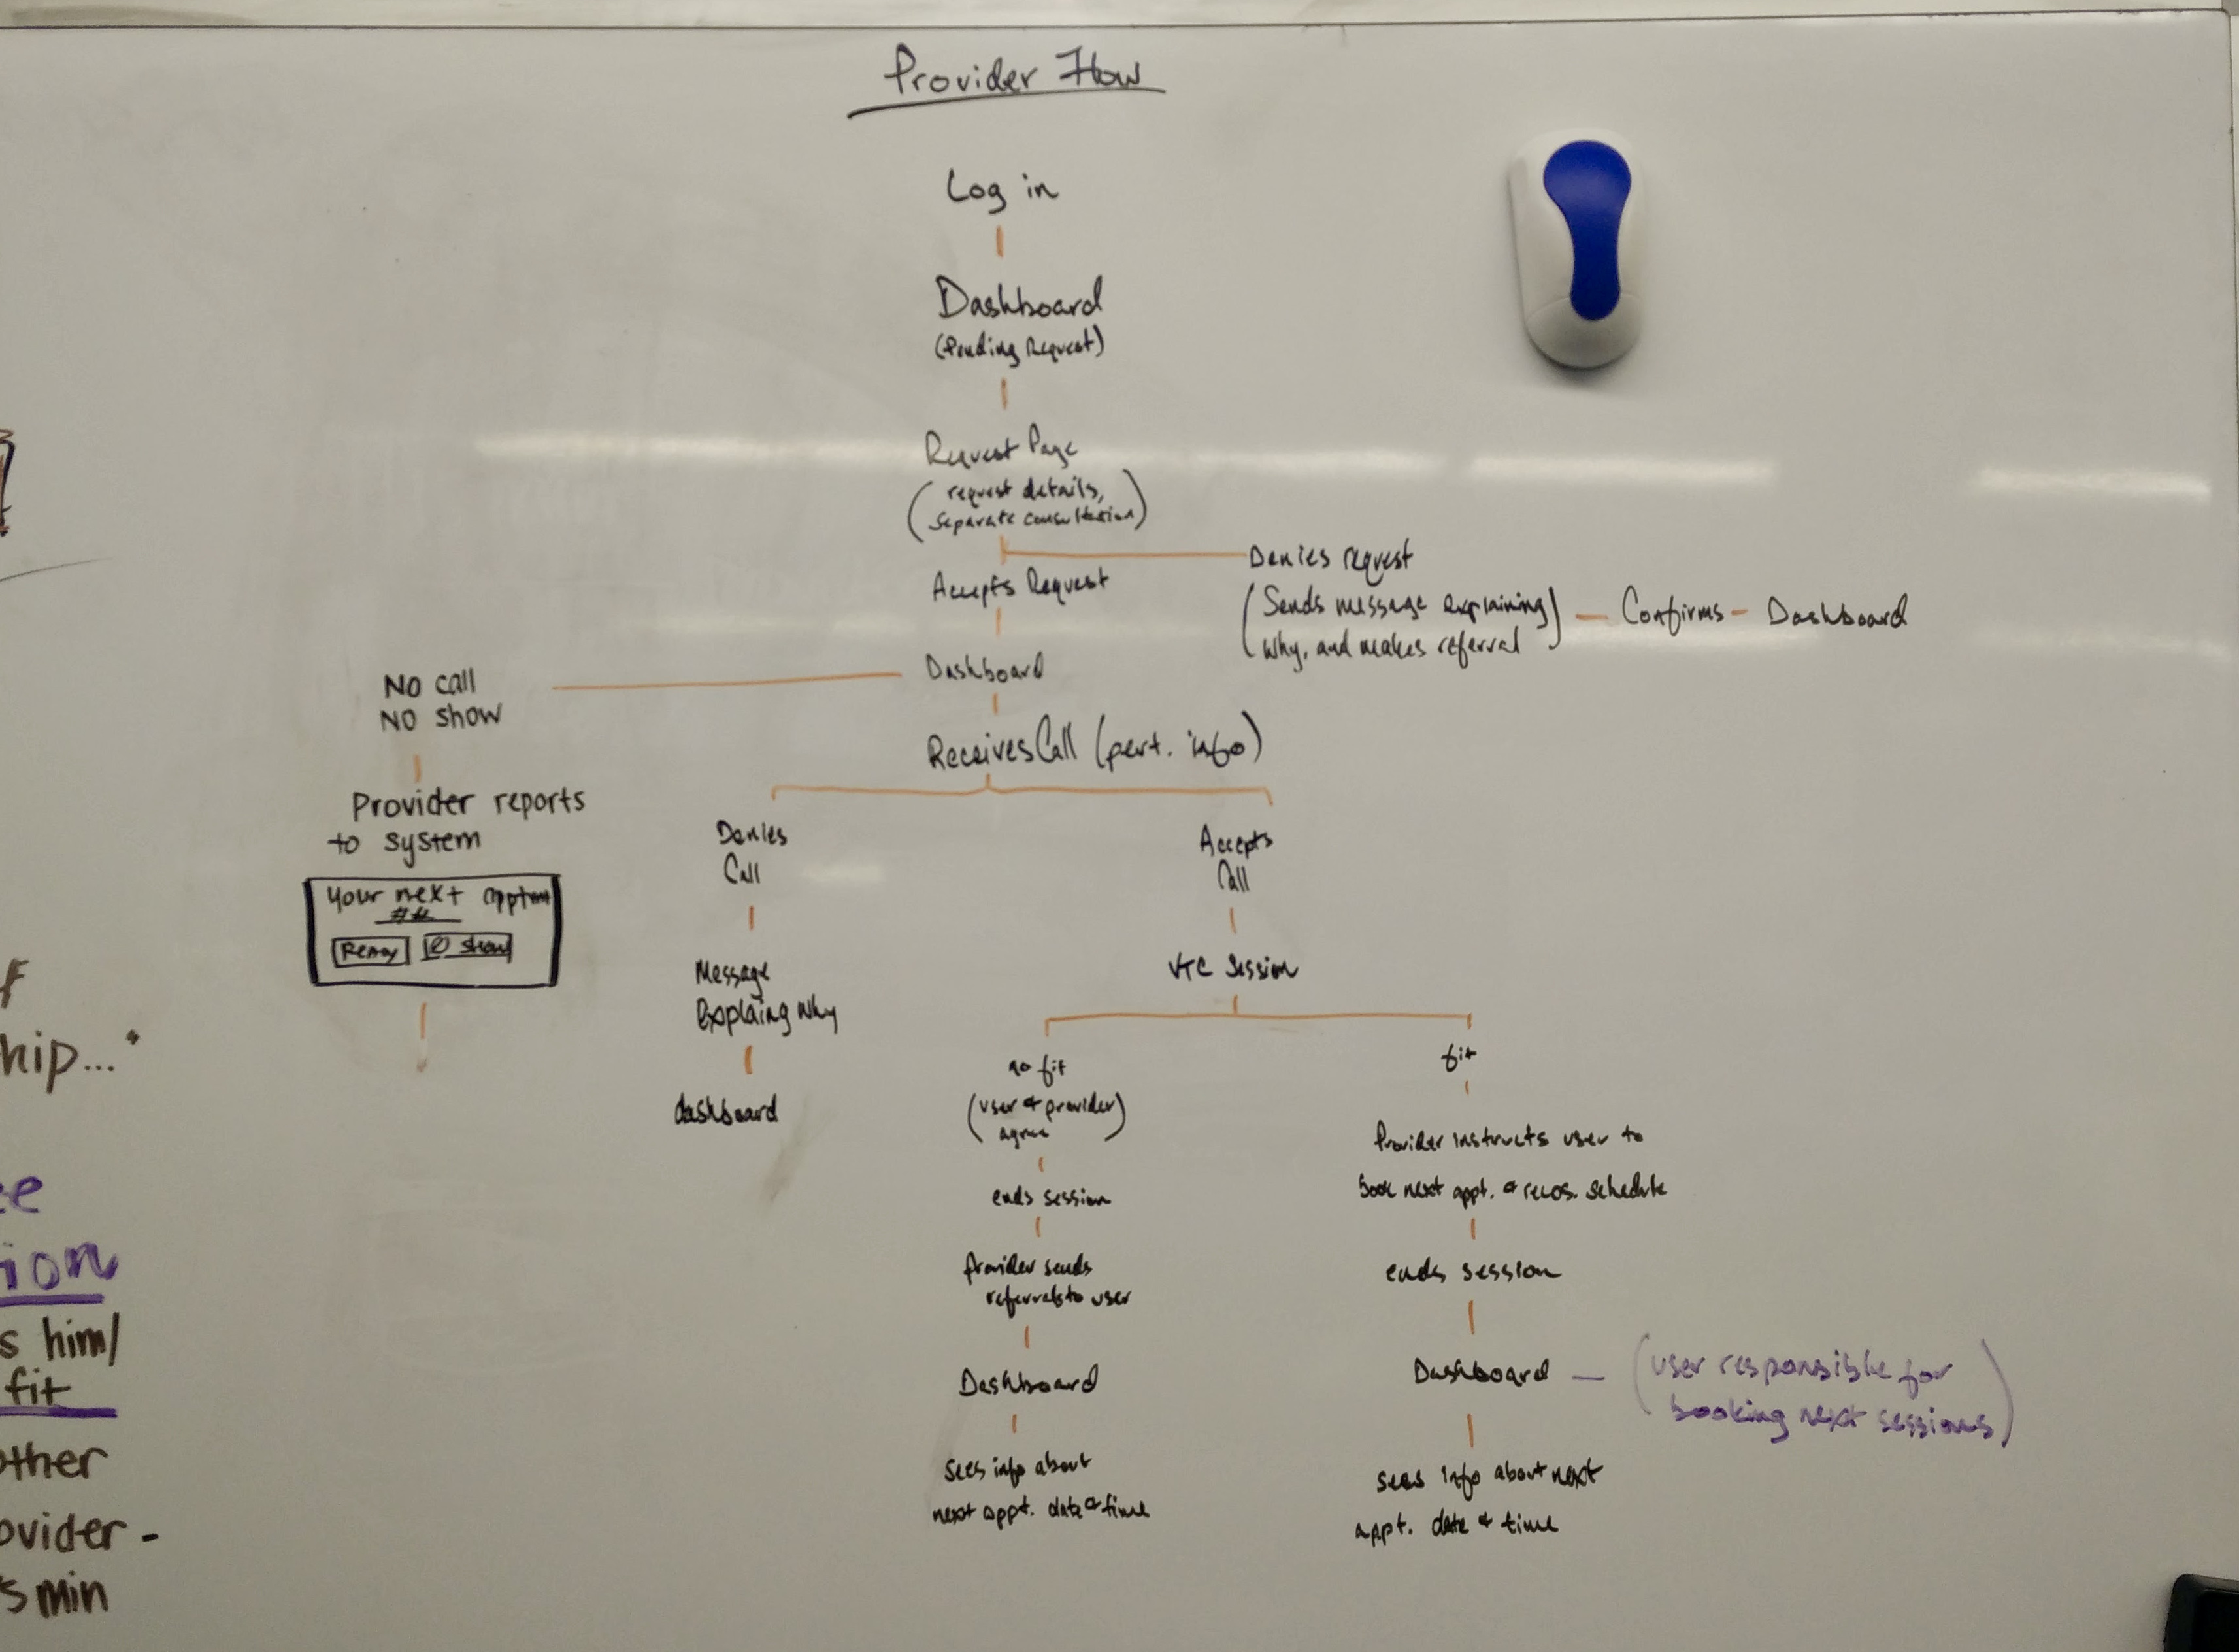 Provider Flow
Log in
Dashboard
(Pending Request)
Request Page
(request details,
separate consultation)
Denies request
Accepts Request
(Sends message explaining
why, and makes referral) - Confirms - Dashboard
Dashboard
No call
No show
Receives Call (pert. info)
Provider reports
to system
Your next
##
show
Denies
Call
Accepts
Call
Message
Explaing why
dashboard
VTC Session
no fit
(user & provider
agree)
fit
ends session
Provider sends
referrals to user
Dashboard
sees info about
next appt. date & time
Provider instructs user to
book next appt. & schedule
ends session
Dashboard - (user responsible for
booking next sessions)
sees info about next
appt. date & time
hip...
ion
s him/
fit
ther
ovider -
5 min